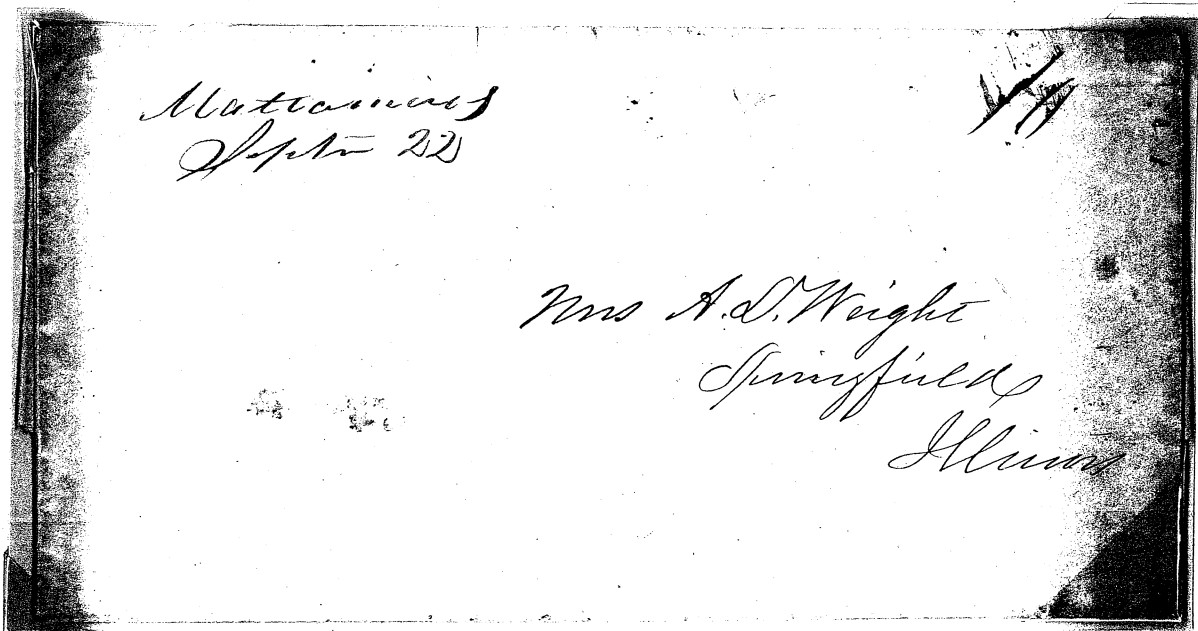 Mattawan
Septr 22
Mrs A. D. Wright
Springfield
Illinois